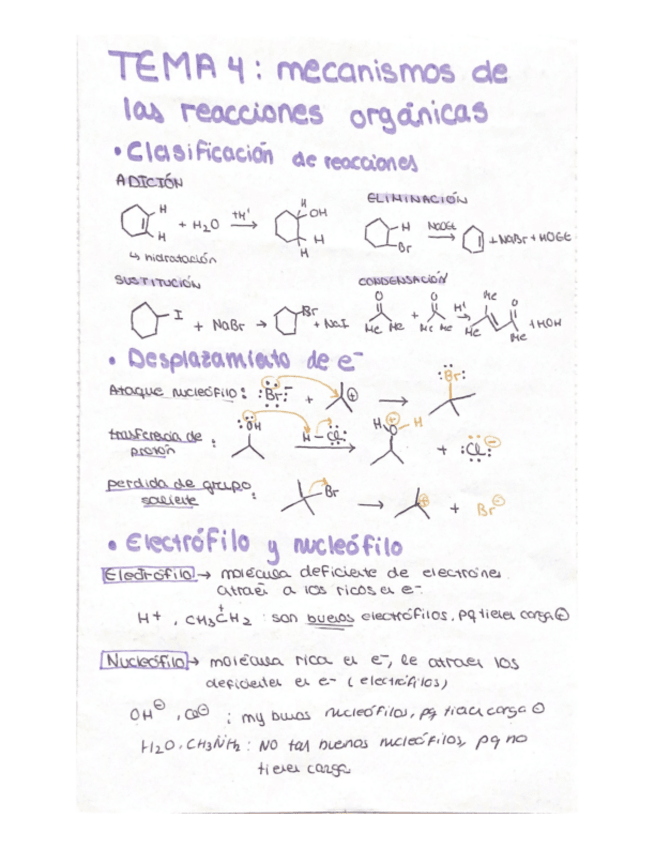 TEMA 4: mecanismos de
las reacciones orgánicas
• Clasificación de reacciones
ADICIÓN
H
H
+ H2O
+H'
H
OH
H
H
↳ hidratación
ELIMINACIÓN
H
Br
NaOEt
+ NaBr + HOEt
SUSTITUCIÓN
I
+ NaBr →
Br
+ NaI
CONDENSACIÓN
O
Me Me
+
O
Me Me
H+
Me
Me
O
Me
+ HOH
• Desplazamiento de e-
Ataque nucleófilo: :Br:- + ⊕ → :Br:
trasferencia de
protón :
:OH
H-Cl:
H O H
+ :Cl: ⊖
perdida de grupo
saliente :
Br → ⊕ + Br⊖
• Electrófilo y nucleófilo
Electrófilo → molécula deficiente de electrones
atraen a los ricos en e-
H+, CH3C+H2 : son buenos electrófilos, pq tienen carga ⊕
Nucleófilo → molécula rica en e-, le atraen los
deficientes en e- (electrófilos)
OH⊖, Cl⊖ ; my buenos nucleófilos, pq tienen carga ⊖
H2O, CH3NH2 : NO tan buenos nucleófilos, pq no
tienen carga